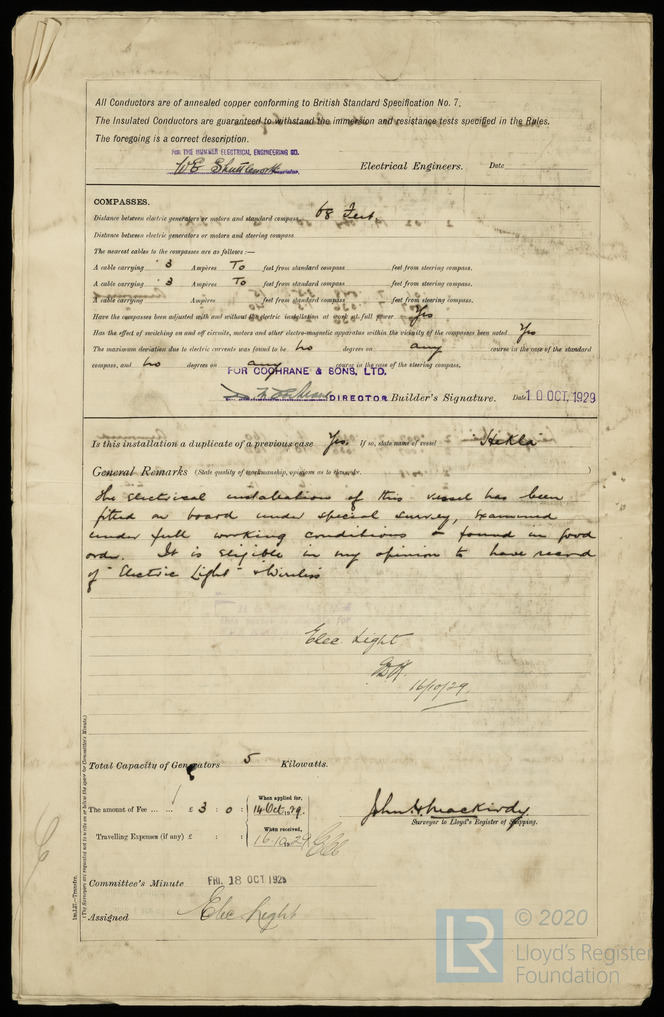 All Conductors are of annealed copper conforming to British Standard Specification No. 7.
The Insulated Conductors are guaranteed to withstand the immersion and resistance tests specified in the Rules.
The foregoing is a correct description.
FOR THE HUMBER ELECTRICAL ENGINEERING CO.
W E Shuttleworth Electrical Engineers. Date
COMPASSES.
Distance between electric generators or motors and standard compass 68 Feet
Distance between electric generators or motors and steering compass
The nearest cables to the compasses are as follows:—
A cable carrying 3 Ampères To feet from standard compass feet from steering compass.
A cable carrying 3 Ampères To feet from standard compass feet from steering compass.
A cable carrying Ampères feet from standard compass feet from steering compass.
Have the compasses been adjusted with and without the electric installation at work at full power Yes
Has the effect of switching on and off circuits, motors and other electro-magnetic apparatus within the vicinity of the compasses been noted Yes
The maximum deviation due to electric currents was found to be No degrees on any course in the case of the standard
compass, and No degrees on any course in the case of the steering compass.
FOR COCHRANE & SONS, LTD.
DIRECTOR Builder's Signature. Date 10 OCT. 1929
Is this installation a duplicate of a previous case Yes If so, state name of vessel "Hekla"
General Remarks (State quality of workmanship, opinions as to safety, &c. )
The Electrical installation of this vessel has been
fitted on board under special survey, examined
under full working conditions & found in good
order. It is eligible in my opinion to have record
of "Electric Light" & Wireless
Elec Light
16/10/29.
Total Capacity of Generators 5 Kilowatts.
The amount of Fee ... ... £ 3 : 0 : When applied for, 14 Oct 1929.
Travelling Expenses (if any) £ : : When received, 16.10.1929
Surveyor to Lloyd's Register of Shipping.
Committee's Minute FRI. 18 OCT 1929
Assigned Elec Light
1m.1.27.—Transfer.
(The Surveyors are requested not to write on or below the space for Committee's Minute.)
LR © 2020
Lloyd's Register
Foundation